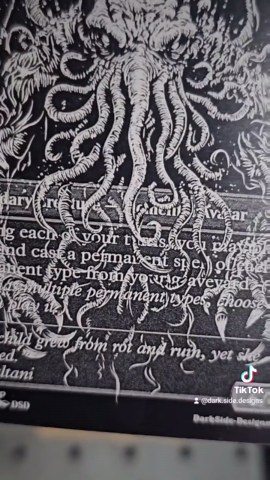 dary Creature
Avatar
ng each of your turns, you may play
and cast a permanent spell of
nent type from your graveyard.
multiple permanent types, choose
child grew from rot and ruin, yet she
ed.
ltani
DSD
Dark Side Designs
TikTok
@dark.side.designs